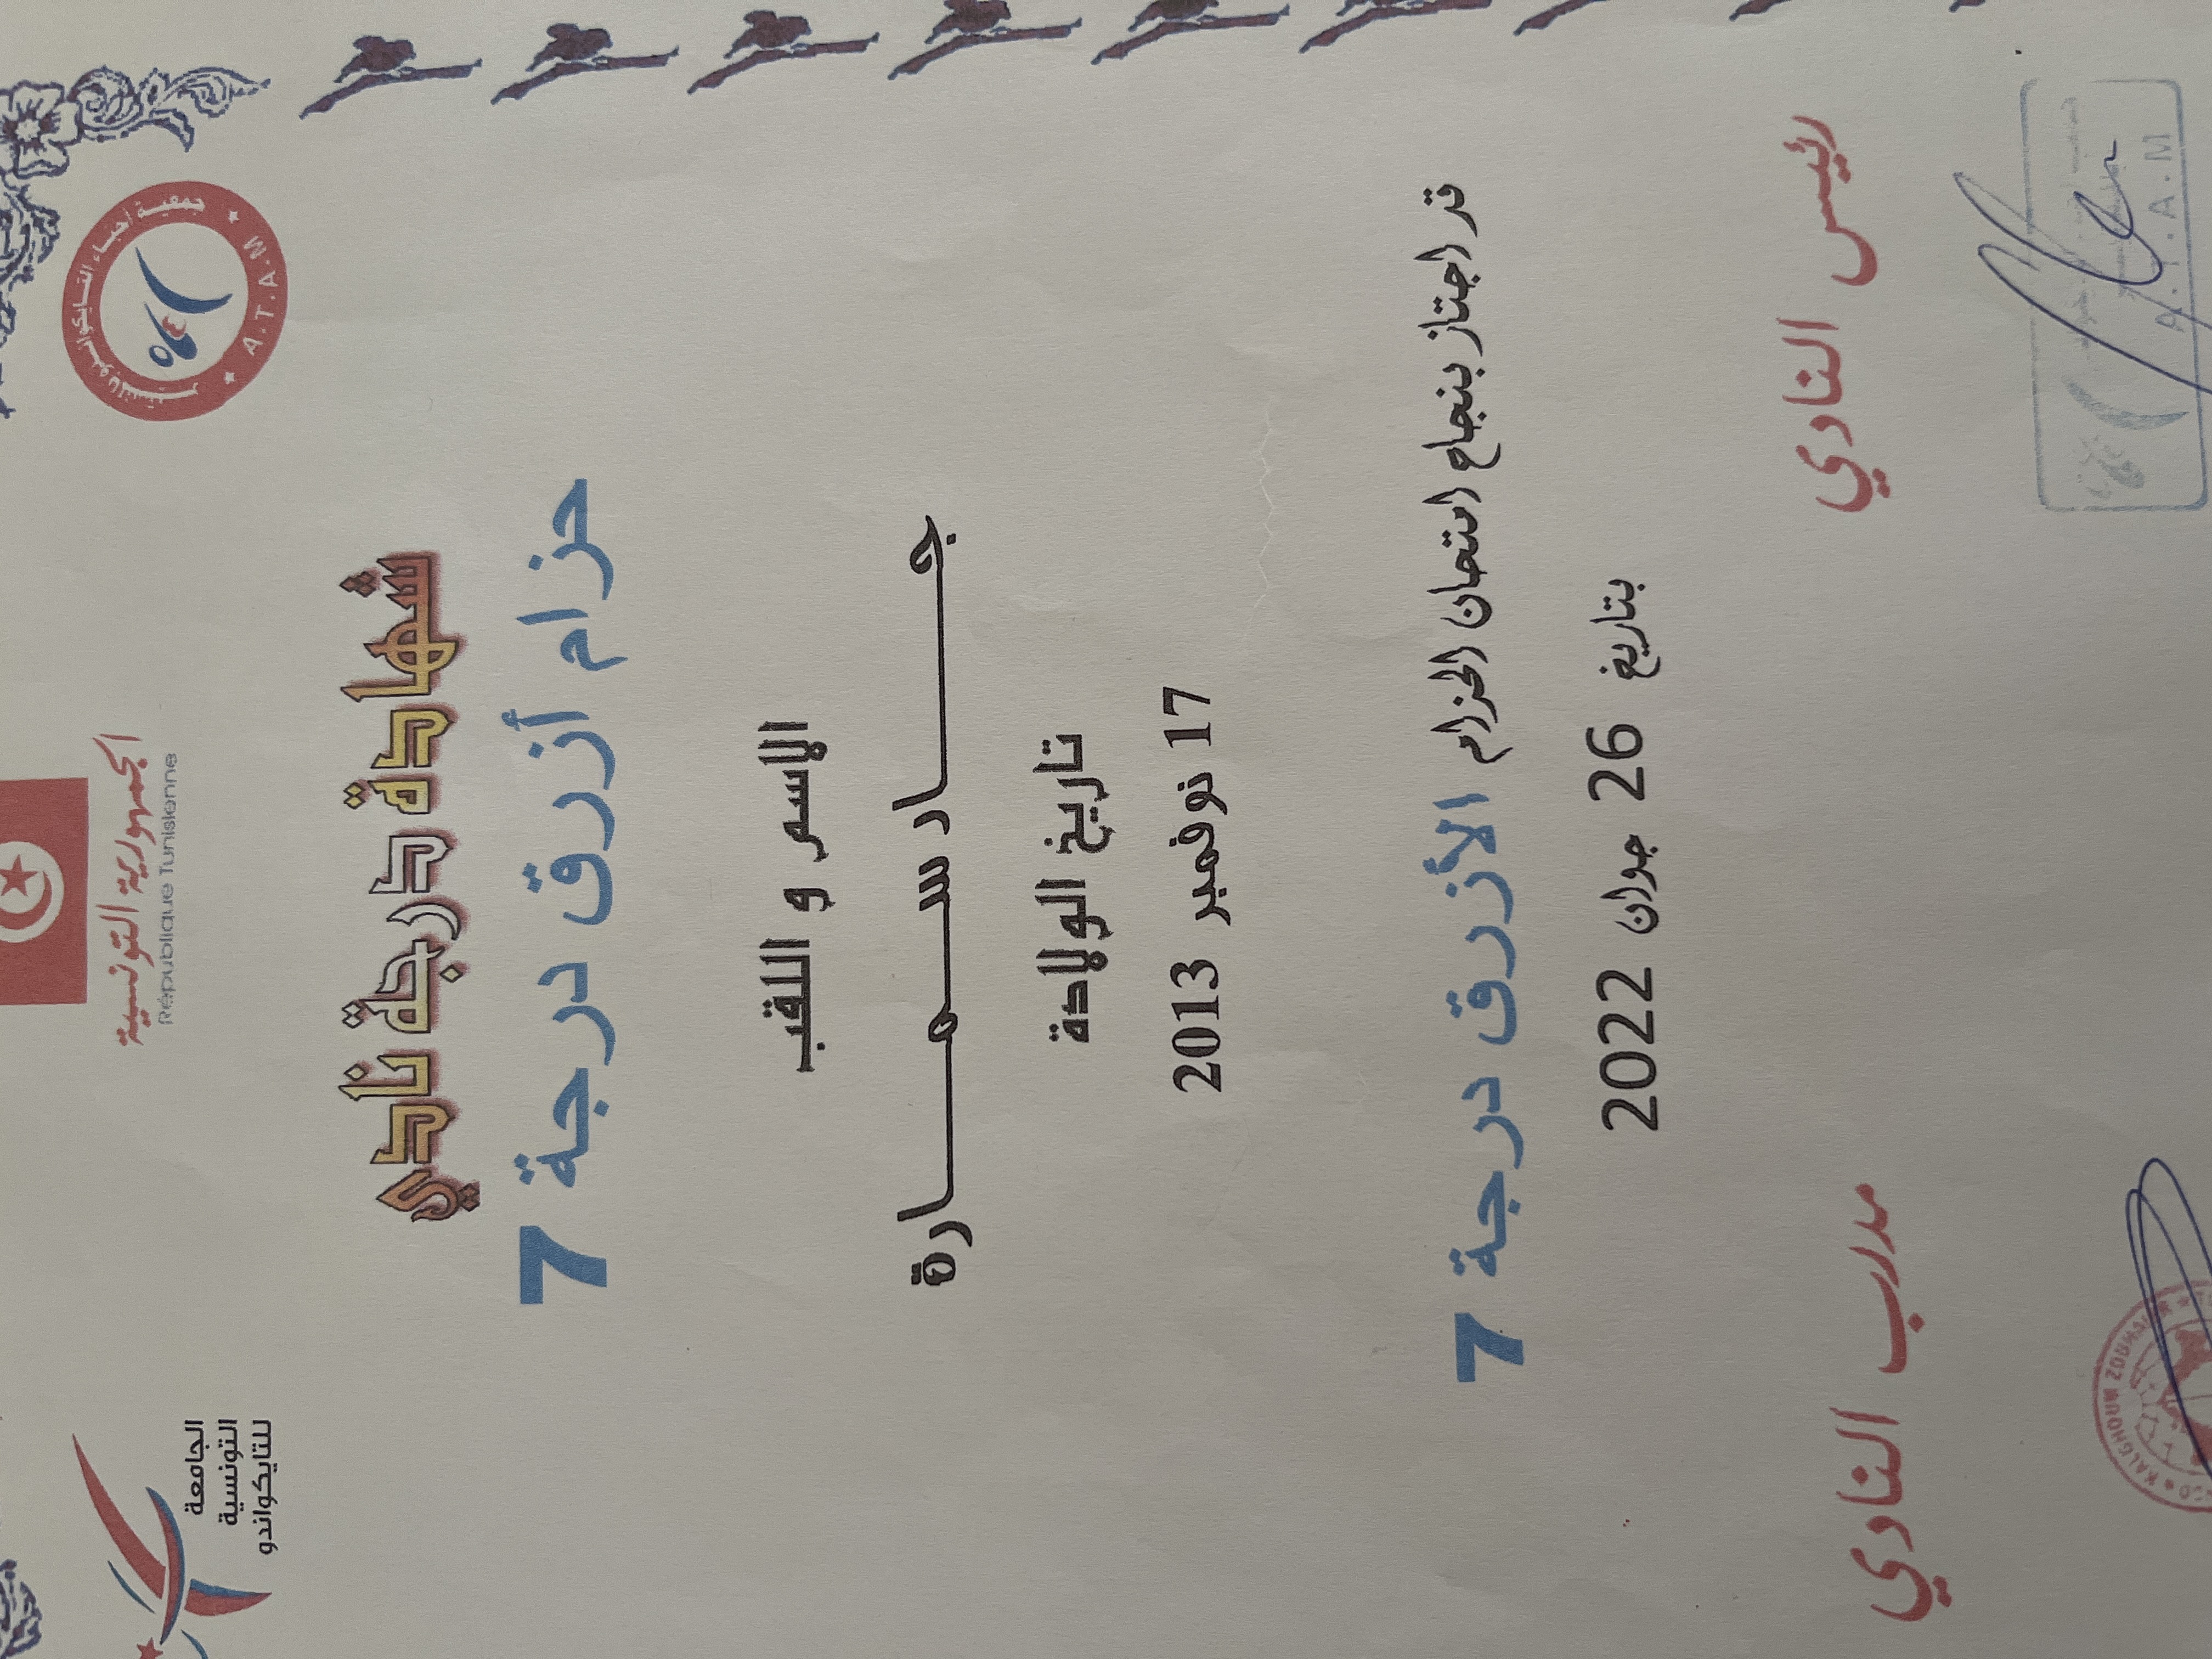 الجمهورية التونسية
République Tunisienne
جمعية أحباء التايكواندو
A.T.A.M
الجامعة
التونسية
للتايكواندو
شهادة درجة نادي
حزام أزرق درجة 7
الاسم و اللقب
جـــاد سـمـــارة
تاريخ الولادة
17 نوفمبر 2013
قد اجتاز بنجاح امتحان الحزام الأزرق درجة 7
بتاريخ 26 جوان 2022
رئيس النادي
مدرب النادي
A.T.A.M
KALGHOUM ZOUHA